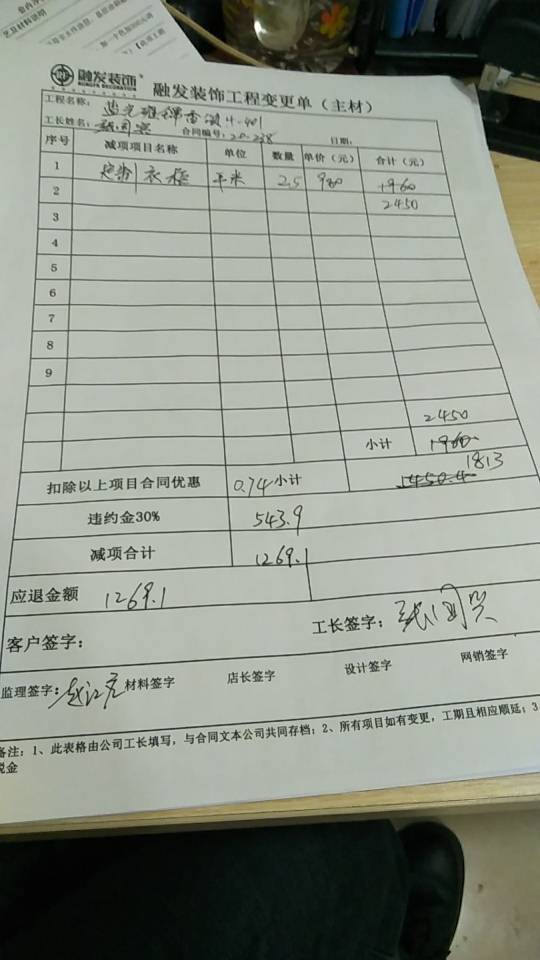 融发装饰
RONGFA DECORATION
融发装饰工程变更单（主材）
工程名称： 4-401
工长姓名： 合同编号：20-238 日期：
序号 减项项目名称 单位 数量 单价（元） 合计（元）
1 定制衣柜 平米 2.5 980 1960
2 2450
3
4
5
6
7
8
9
2450
小计 1960
扣除以上项目合同优惠 0.74 小计 1450.4 1813
违约金30% 543.9
减项合计 1269.1
应退金额 1269.1
客户签字： 工长签字：
监理签字： 材料签字 店长签字 设计签字 网销签字
备注：1、此表格由公司工长填写，与合同文本公司共同存档；2、所有项目如有变更，工期且相应顺延；3
税金